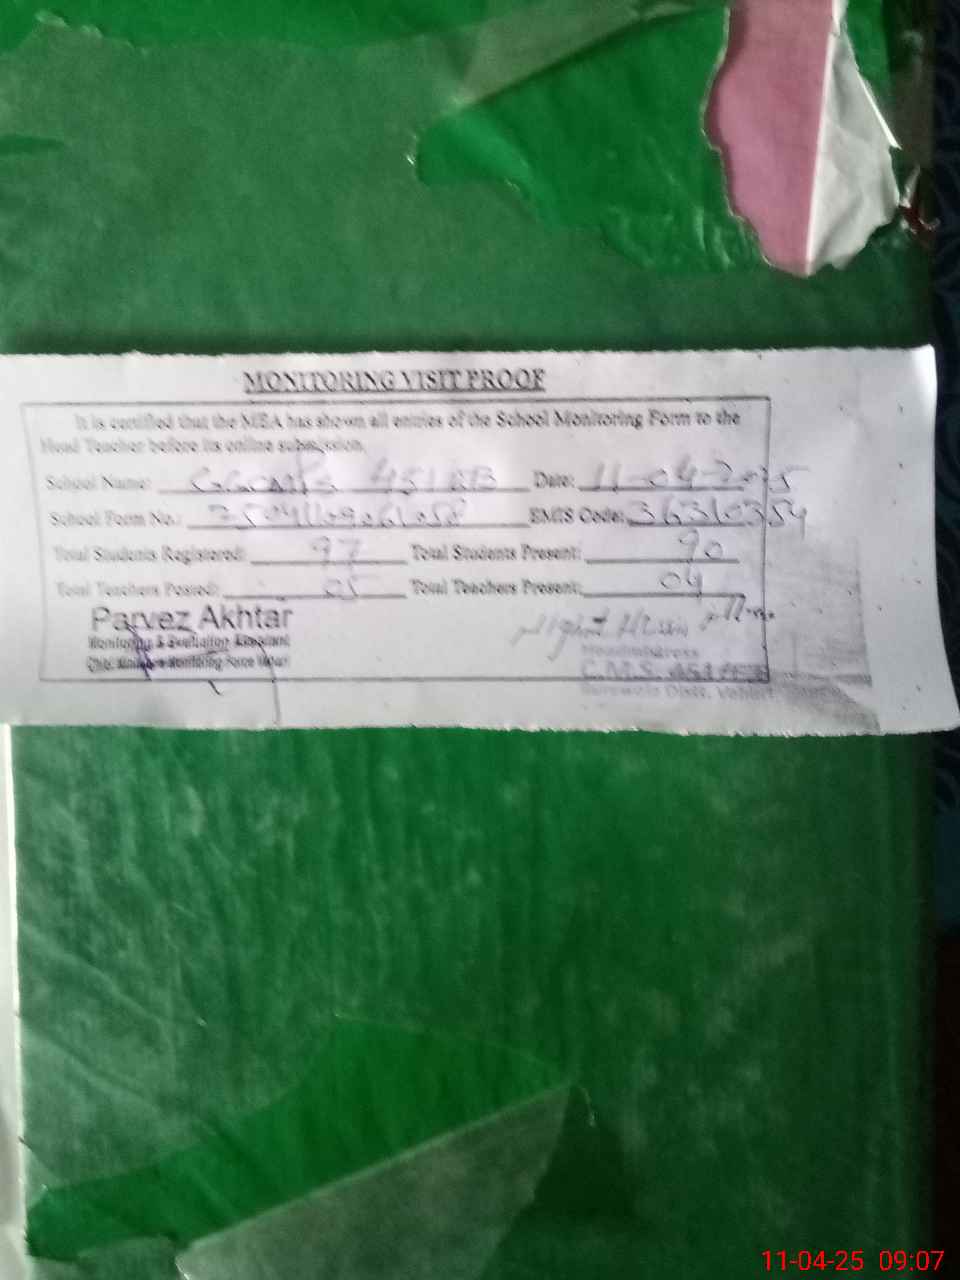 MONITORING VISIT PROOF
It is certified that the MEA has shown all entries of the School Monitoring Form to the
Head Teacher before its online submission.
School Name: 451 EB Date: 11-04-2025
School Form No.: EMIS Code: 36310354
Total Students Registered: 97 Total Students Present: 90
Total Teachers Posted: 05 Total Teachers Present: 04
Parvez Akhtar
Monitoring & Evaluation Assistant
Chief Minister's Monitoring Force Vehari
Headmistress
Burewala Distt. Vehari
11-04-25 09:07